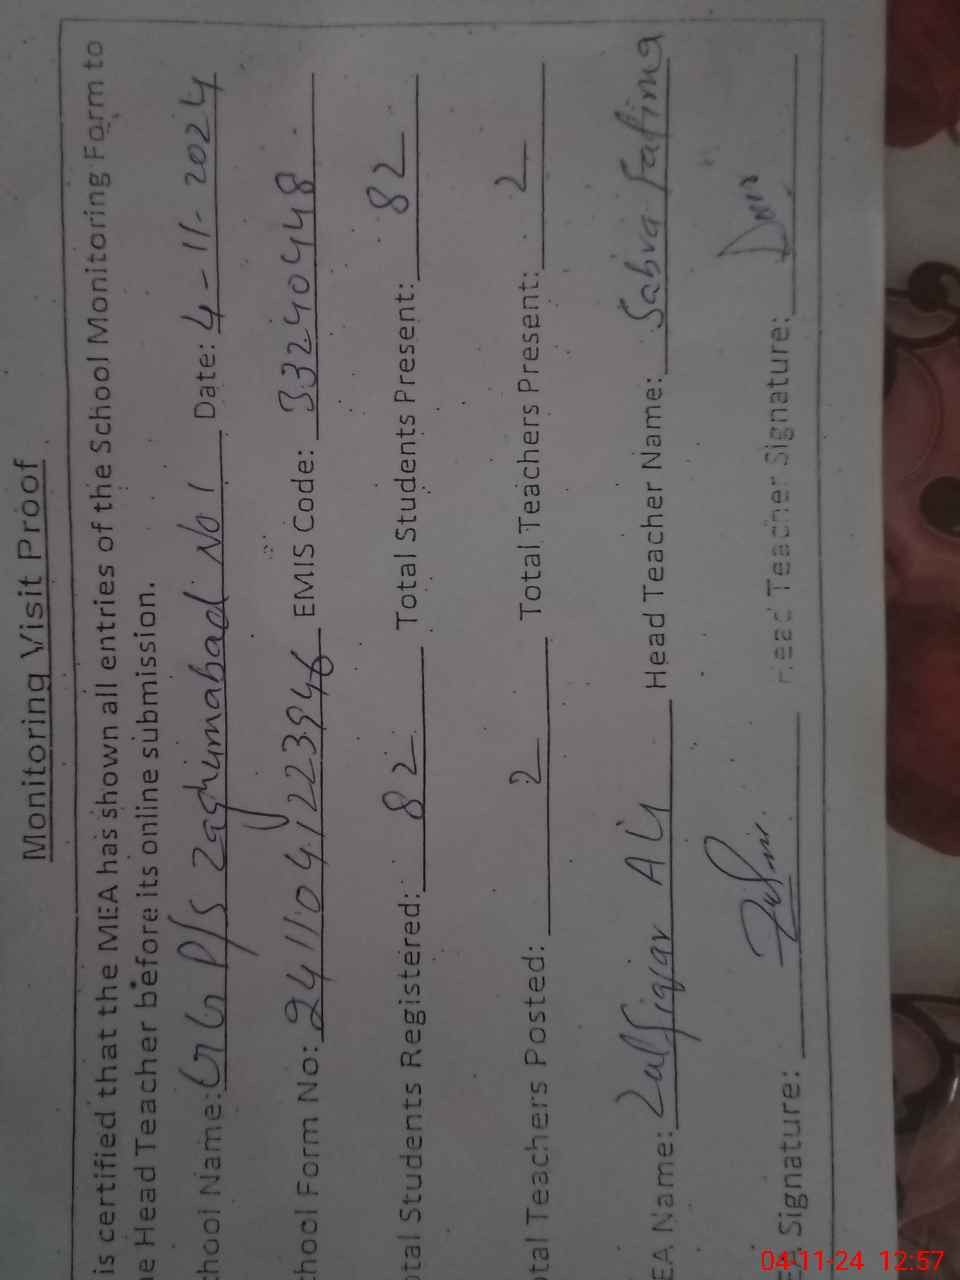 Monitoring Visit Proof
is certified that the MEA has shown all entries of the School Monitoring Form to
e Head Teacher before its online submission.
hool Name: GG P/S Zaghumabad No 1 Date: 4-11-2024
hool Form No: 2411041223946 EMIS Code: 33240448
otal Students Registered: 82 Total Students Present: 82
otal Teachers Posted: 2 Total Teachers Present: 2
EA Name: Zulfiqar Aly Head Teacher Name: Sabira Fatima
Signature: Head Teacher Signature:
04-11-24 12:57